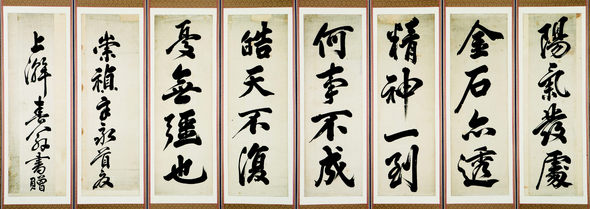 陽氣發處
金石亦透
精神一到
何事不成
皓天不復
憂無疆也
崇禎
上澣 春翁書贈